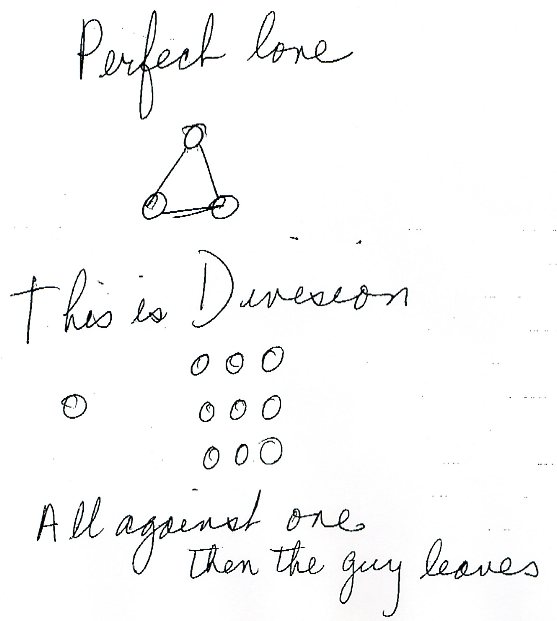 Perfect love
This is Division
All against one
then the guy leaves